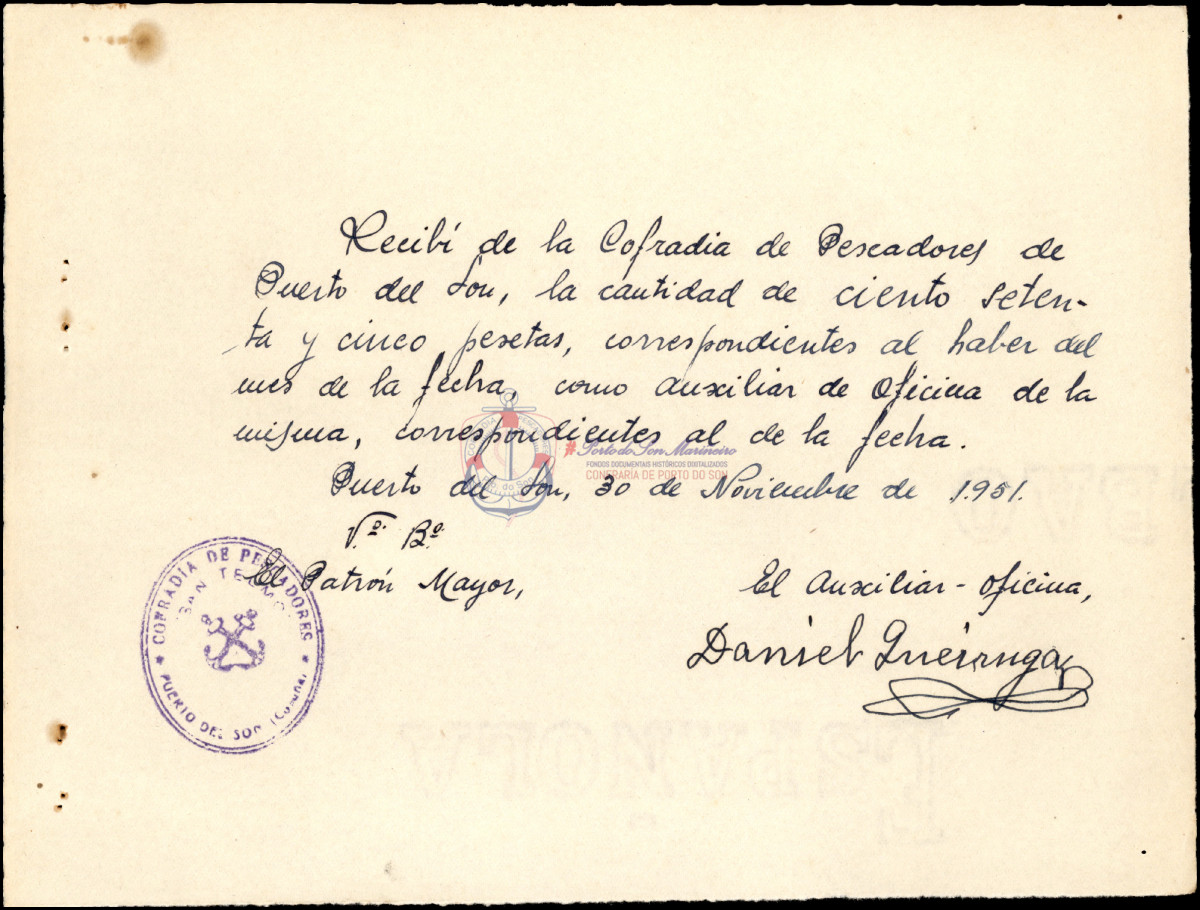 Recibí de la Cofradia de Pescadores de
Puerto del Son, la cantidad de ciento seten-
ta y cinco pesetas, correspondientes al haber del
mes de la fecha, como auxiliar de Oficina de la
misma, correspondientes al de la fecha.
#Porto do Son Mariñeiro
FONDOS DOCUMENTAIS HISTÓRICOS DIXITALIZADOS
CONFRARÍA DE PORTO DO SON
Puerto del Son, 30 de Noviembre de 1.951.
V.º B.º
El Patrón Mayor,
El Auxiliar-Oficina,
Daniel Queiruga
COFRADIA DE PESCADORES
SAN TELMO
PUERTO DEL SON (Coruña)